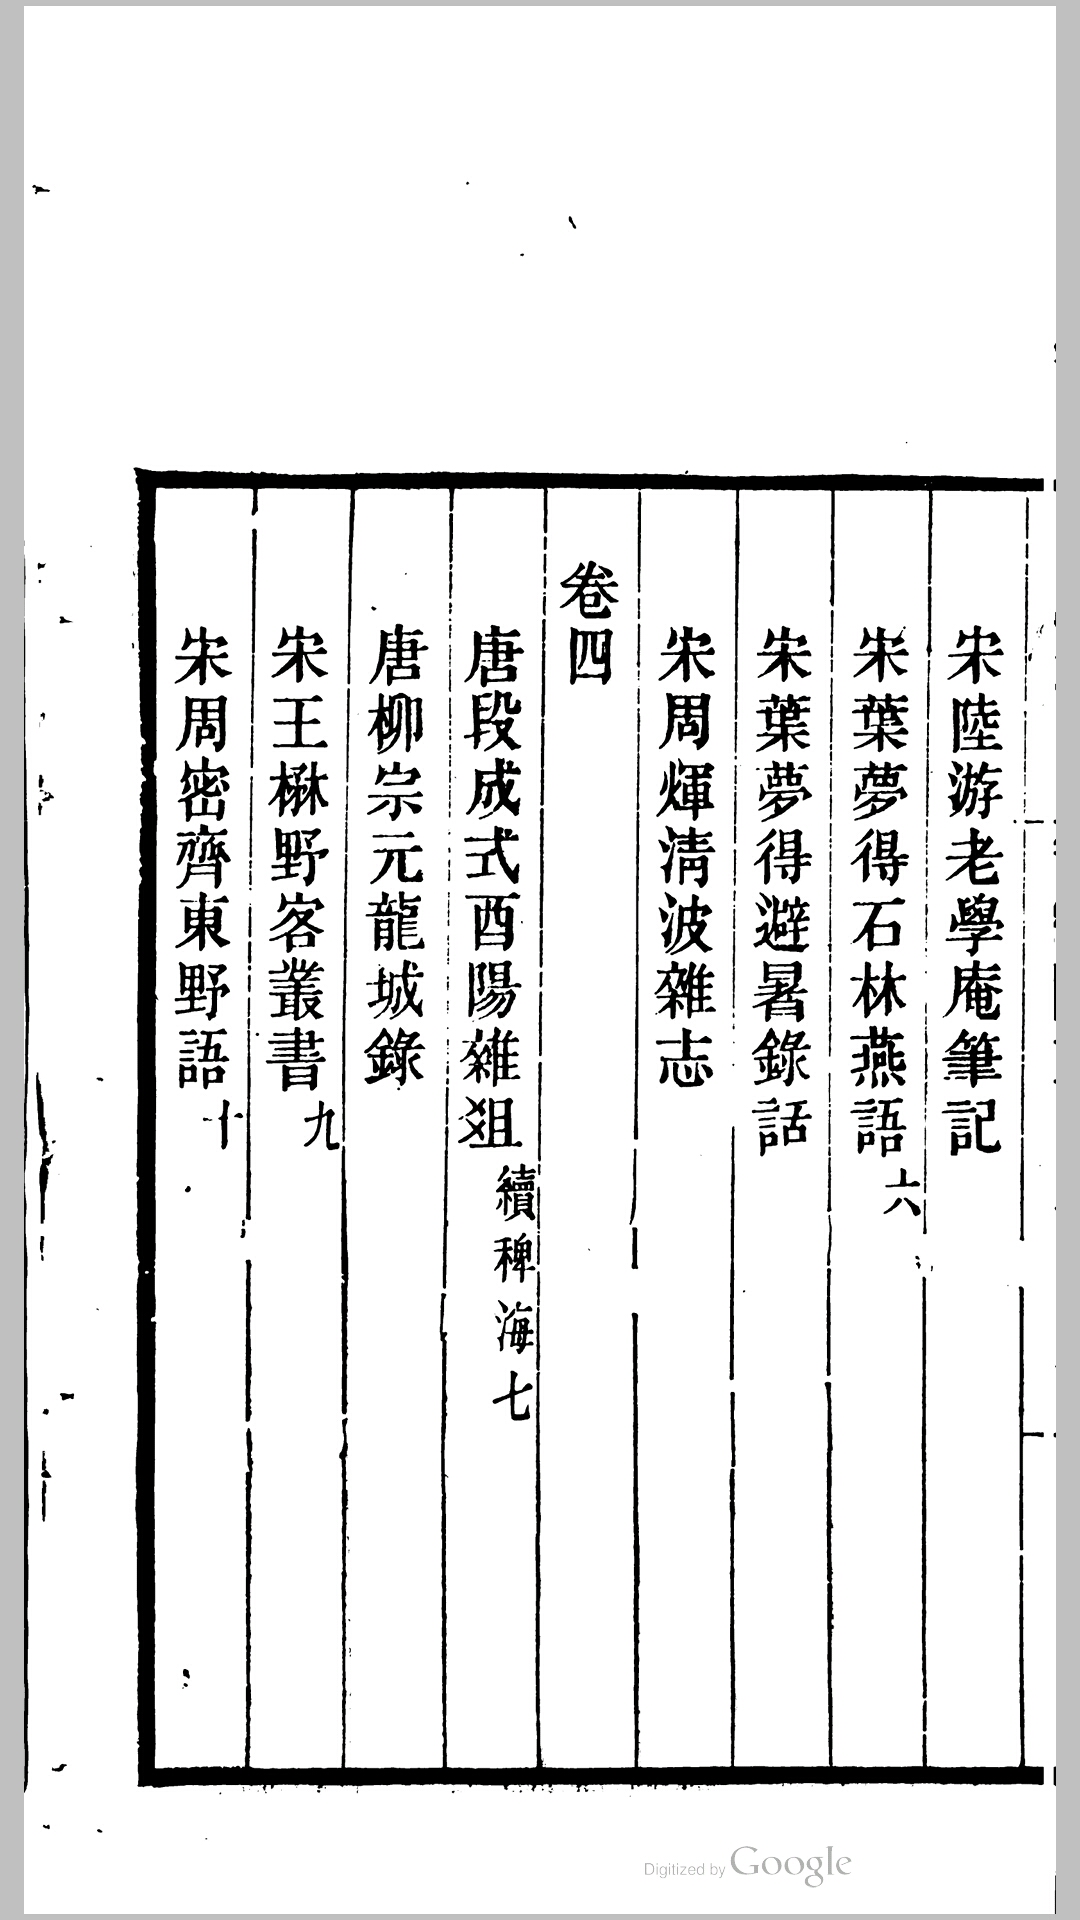 宋陸游老學庵筆記
宋葉夢得石林燕語六
宋葉夢得避暑錄話
宋周煇淸波雜志
卷四
唐段成式酉陽雜俎續稗海七
唐柳宗元龍城錄
宋王楙野客叢書九
宋周密齊東野語十
Digitized by Google